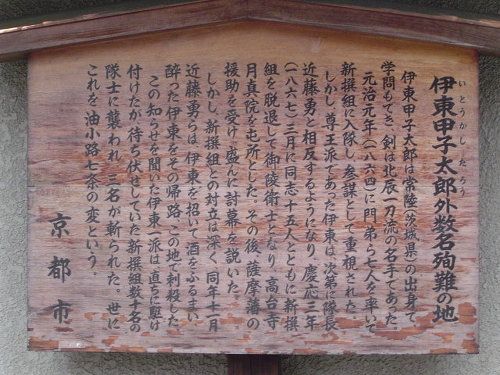 伊東甲子太郎外数名殉難の地
いとうかし たろう
伊東甲子太郎は常陸(茨城県)の出身で
学問もでき、剣は北辰一刀流の名手であった。
元治元年(一八六四)に門弟ら七人を率いて
新撰組に入隊し、参謀として重視された。
しかし、尊王派であった伊東は、次第に隊長
近藤勇と相反するようになり、慶応三年
(一八六七)三月に同志十五人とともに新撰
組を脱退して御陵衛士となり、高台寺
月真院を屯所とした。その後、薩摩藩の
援助を受け、盛んに討幕を説いた。
しかし、新撰組との対立は深く、同年十一月
近藤勇らは、伊東を招いて酒をふるまい、
酔った伊東をその帰路、この地で刺殺した。
この知らせを聞いた伊東一派は直ちに駆け
付けたが、待ち伏せしていた新撰組数十名の
隊士に襲われ、三名が斬られた。世に
これを油小路七条の変という。
京都市